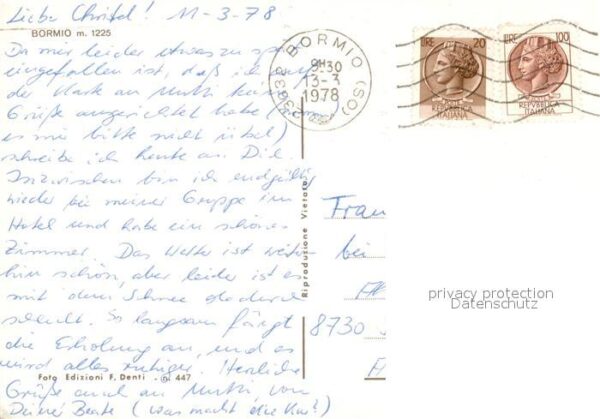 Liebe Christel! 11-3-78
BORMIO m. 1225
Da mir leider etwas zu spät
eingefallen ist, daß ich auf
der Karte an Mutti keine
Grüße ausgerichtet habe (nimm
es mir bitte nicht übel)
schreibe ich heute an Dich.
Inzwischen bin ich endgültig
wieder bei meiner Gruppe im
Hotel und habe ein schönes
Zimmer. Das Wetter ist weiter-
hin schön, aber leider ist es
mit dem Schnee dadurch
schlecht. So langsam fängt
die Erholung an, und es
wird alles ruhiger. Herzliche
Foto Edizioni F. Denti - 447
Grüße auch an Mutti von
Deiner Beate (was macht die Kur?)
Riproduzione Vietata
23032 BORMIO (SO)
9H30
13-3
1978
LIRE 20
REPUBBLICA
ITALIANA
LIRE 100
REPUBBLICA
ITALIANA
Frau
bei
8730
privacy protection
Datenschutz